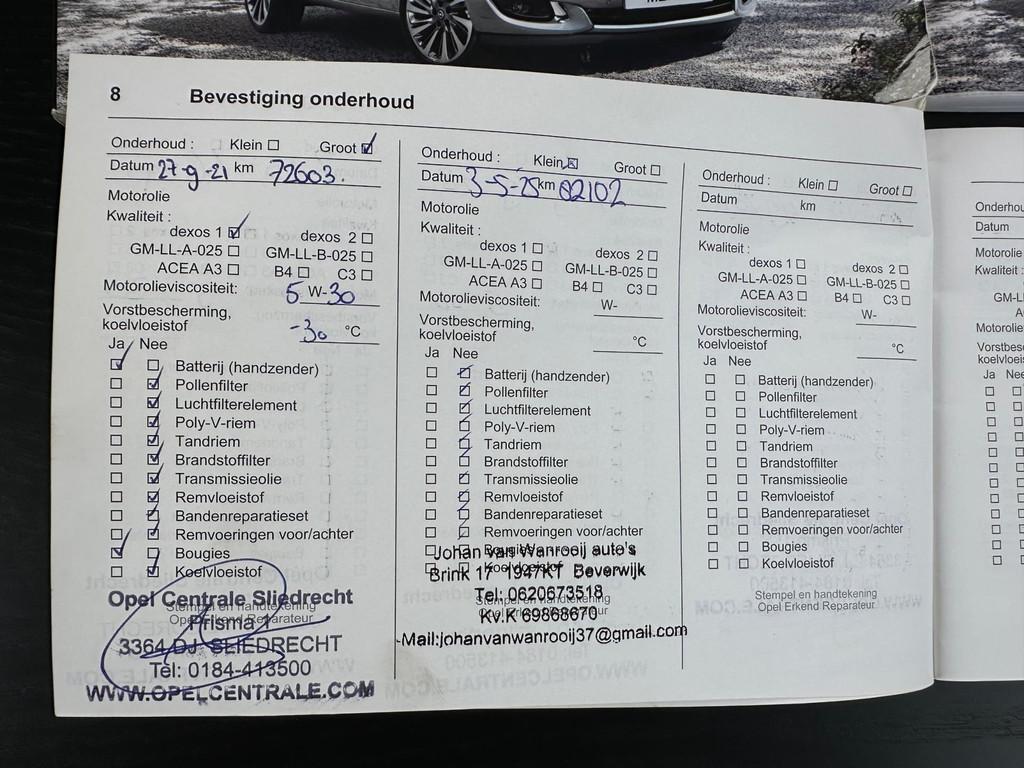 8 Bevestiging onderhoud
Onderhoud : Klein Groot
Datum 27-9-21 km 72603.
Motorolie
Kwaliteit :
dexos 1 dexos 2
GM-LL-A-025 GM-LL-B-025
ACEA A3 B4 C3
Motorolieviscositeit: 5 W-30
Vorstbescherming,
koelvloeistof -30 °C
Ja Nee
Batterij (handzender)
Pollenfilter
Luchtfilterelement
Poly-V-riem
Tandriem
Brandstoffilter
Transmissieolie
Remvloeistof
Bandenreparatieset
Remvoeringen voor/achter
Bougies
Koelvloeistof
Opel Centrale Sliedrecht
Stempel en handtekening
Opel Erkend Reparateur
Prisma 1
3364 DJ SLIEDRECHT
Tel: 0184-413500
WWW.OPELCENTRALE.COM
Onderhoud : Klein Groot
Datum 3-5-25 km 82102
Motorolie
Kwaliteit :
dexos 1 dexos 2
GM-LL-A-025 GM-LL-B-025
ACEA A3 B4 C3
Motorolieviscositeit: W-
Vorstbescherming,
koelvloeistof °C
Ja Nee
Batterij (handzender)
Pollenfilter
Luchtfilterelement
Poly-V-riem
Tandriem
Brandstoffilter
Transmissieolie
Remvloeistof
Bandenreparatieset
Remvoeringen voor/achter
Bougies
Johan van Wanrooij auto's
Koelvloeistof
Brink 17 1947KT Beverwijk
Tel: 0620673518
Stempel en handtekening
Opel Erkend Reparateur
Kv.K 69868670
-Mail:johanvanwanrooij37@gmail.com
Onderhoud : Klein Groot
Datum km
Motorolie
Kwaliteit :
dexos 1 dexos 2
GM-LL-A-025 GM-LL-B-025
ACEA A3 B4 C3
Motorolieviscositeit: W-
Vorstbescherming,
koelvloeistof °C
Ja Nee
Batterij (handzender)
Pollenfilter
Luchtfilterelement
Poly-V-riem
Tandriem
Brandstoffilter
Transmissieolie
Remvloeistof
Bandenreparatieset
Remvoeringen voor/achter
Bougies
Koelvloeistof
Stempel en handtekening
Opel Erkend Reparateur
Datum
Motorolie
Kwaliteit :
Ja Nee